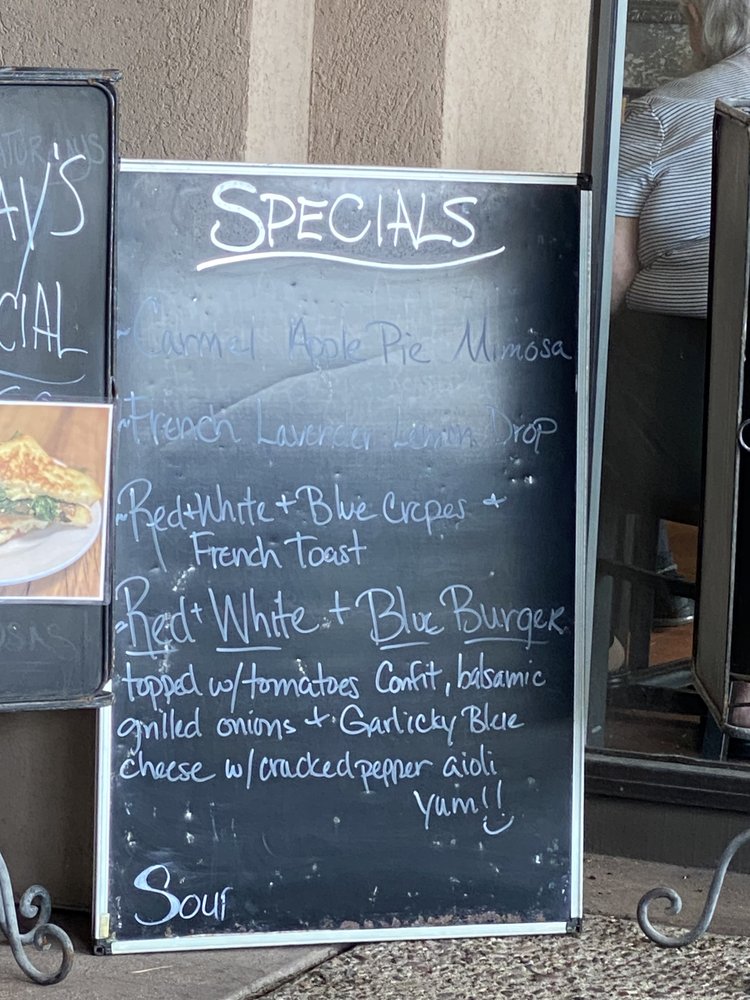 SPECIALS
~Carmel Apple Pie Mimosa
~French Lavender Lemon Drop
~Red+White+Blue Crepes +
French Toast
~Red+White + Blue Burger
topped w/tomatoes Confit, balsamic
grilled onions + Garlicky Blue
cheese w/cracked pepper aioli
Yum!!
Sour
AY'S
CIAL